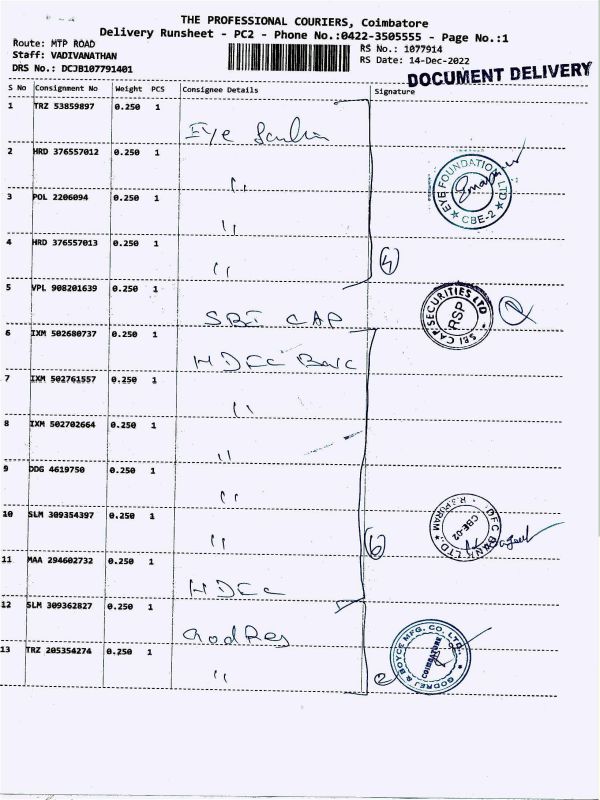 THE PROFESSIONAL COURIERS, Coimbatore
Delivery Runsheet - PC2 - Phone No.:0422-3505555 - Page No.:1
Route: MTP ROAD
Staff: VADIVANATHAN
DRS No.: DCJB107791401
RS No.: 1077914
RS Date: 14-Dec-2022
DOCUMENT DELIVERY
S No Consignment No Weight PCS Consignee Details Signature
1 TRZ 53859897 0.250 1
Eye
2 HRD 376557012 0.250 1
"
EYE FOUNDATION LTD ★ CBE-2 ★
3 POL 2206094 0.250 1
"
4 HRD 376557013 0.250 1
" 4
5 VPL 908201639 0.250 1
SBI CAP
SBI CAP SECURITIES LTD RSP
6 IXM 502680737 0.250 1
HDFC Bank
7 IXM 502761557 0.250 1
"
8 IXM 502702664 0.250 1
"
9 DDG 4619750 0.250 1
"
10 SLM 309354397 0.250 1
" 6
HDFC BANK LTD. ★ R.S.PURAM CBE-02
11 MAA 294602732 0.250 1
HDFC
12 SLM 309362827 0.250 1
Godrej
13 TRZ 205354274 0.250 1
" 2
GODREJ & BOYCE MFG. CO. LTD. COIMBATORE